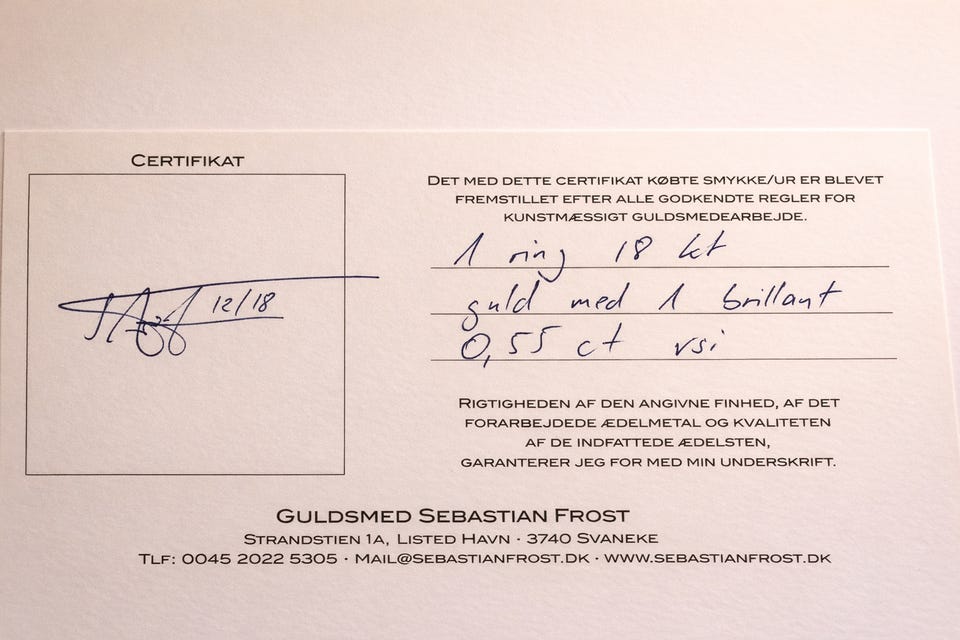 CERTIFIKAT
12/18
DET MED DETTE CERTIFIKAT KØBTE SMYKKE/UR ER BLEVET
FREMSTILLET EFTER ALLE GODKENDTE REGLER FOR
KUNSTMÆSSIGT GULDSMEDEARBEJDE.
1 ring 18 kt
guld med 1 brillant
0,55 ct vsi
RIGTIGHEDEN AF DEN ANGIVNE FINHED, AF DET
FORARBEJDEDE ÆDELMETAL OG KVALITETEN
AF DE INDFATTEDE ÆDELSTEN,
GARANTERER JEG FOR MED MIN UNDERSKRIFT.
GULDSMED SEBASTIAN FROST
STRANDSTIEN 1A, LISTED HAVN · 3740 SVANEKE
TLF: 0045 2022 5305 · MAIL@SEBASTIANFROST.DK · WWW.SEBASTIANFROST.DK